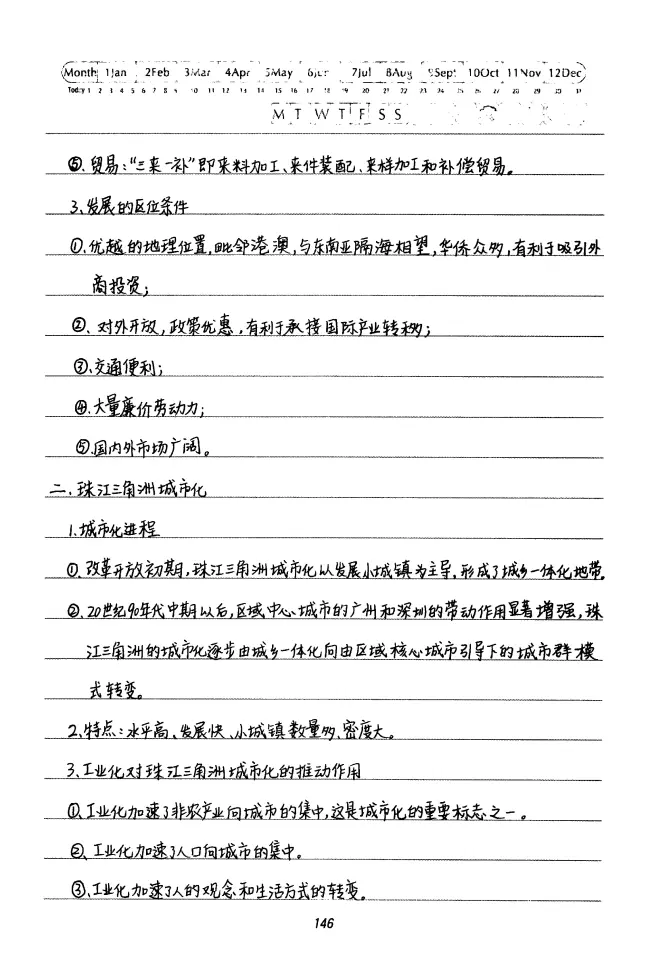 Month 1Jan 2Feb 3Mar 4Apr 5May 6Jun 7Jul 8Aug 9Sept 10Oct 11Nov 12Dec
Today 1 2 3 4 5 6 7 8 9 10 11 12 13 14 15 16 17 18 19 20 21 22 23 24 25 26 27 28 29 30 31
M T W T F S S
⑤、贸易:“三来一补”即来料加工、来件装配、来样加工和补偿贸易。
3、发展的区位条件
①、优越的地理位置,毗邻港澳,与东南亚隔海相望,华侨众多,有利于吸引外
商投资;
②、对外开放,政策优惠,有利于承接国际产业转移;
③、交通便利;
④、大量廉价劳动力;
⑤、国内外市场广阔。
二、珠江三角洲城市化
1、城市化进程
①、改革开放初期,珠江三角洲城市化以发展小城镇为主导,形成了城乡一体化地带。
②、20世纪90年代中期以后,区域中心城市的广州和深圳的带动作用显著增强,珠
江三角洲的城市化逐步由城乡一体化向由区域核心城市引导下的城市群模
式转变。
2、特点:水平高、发展快、小城镇数量多、密度大。
3、工业化对珠江三角洲城市化的推动作用
①、工业化加速了非农产业向城市的集中,这是城市化的重要标志之一。
②、工业化加速了人口向城市的集中。
③、工业化加速了人的观念和生活方式的转变。
146